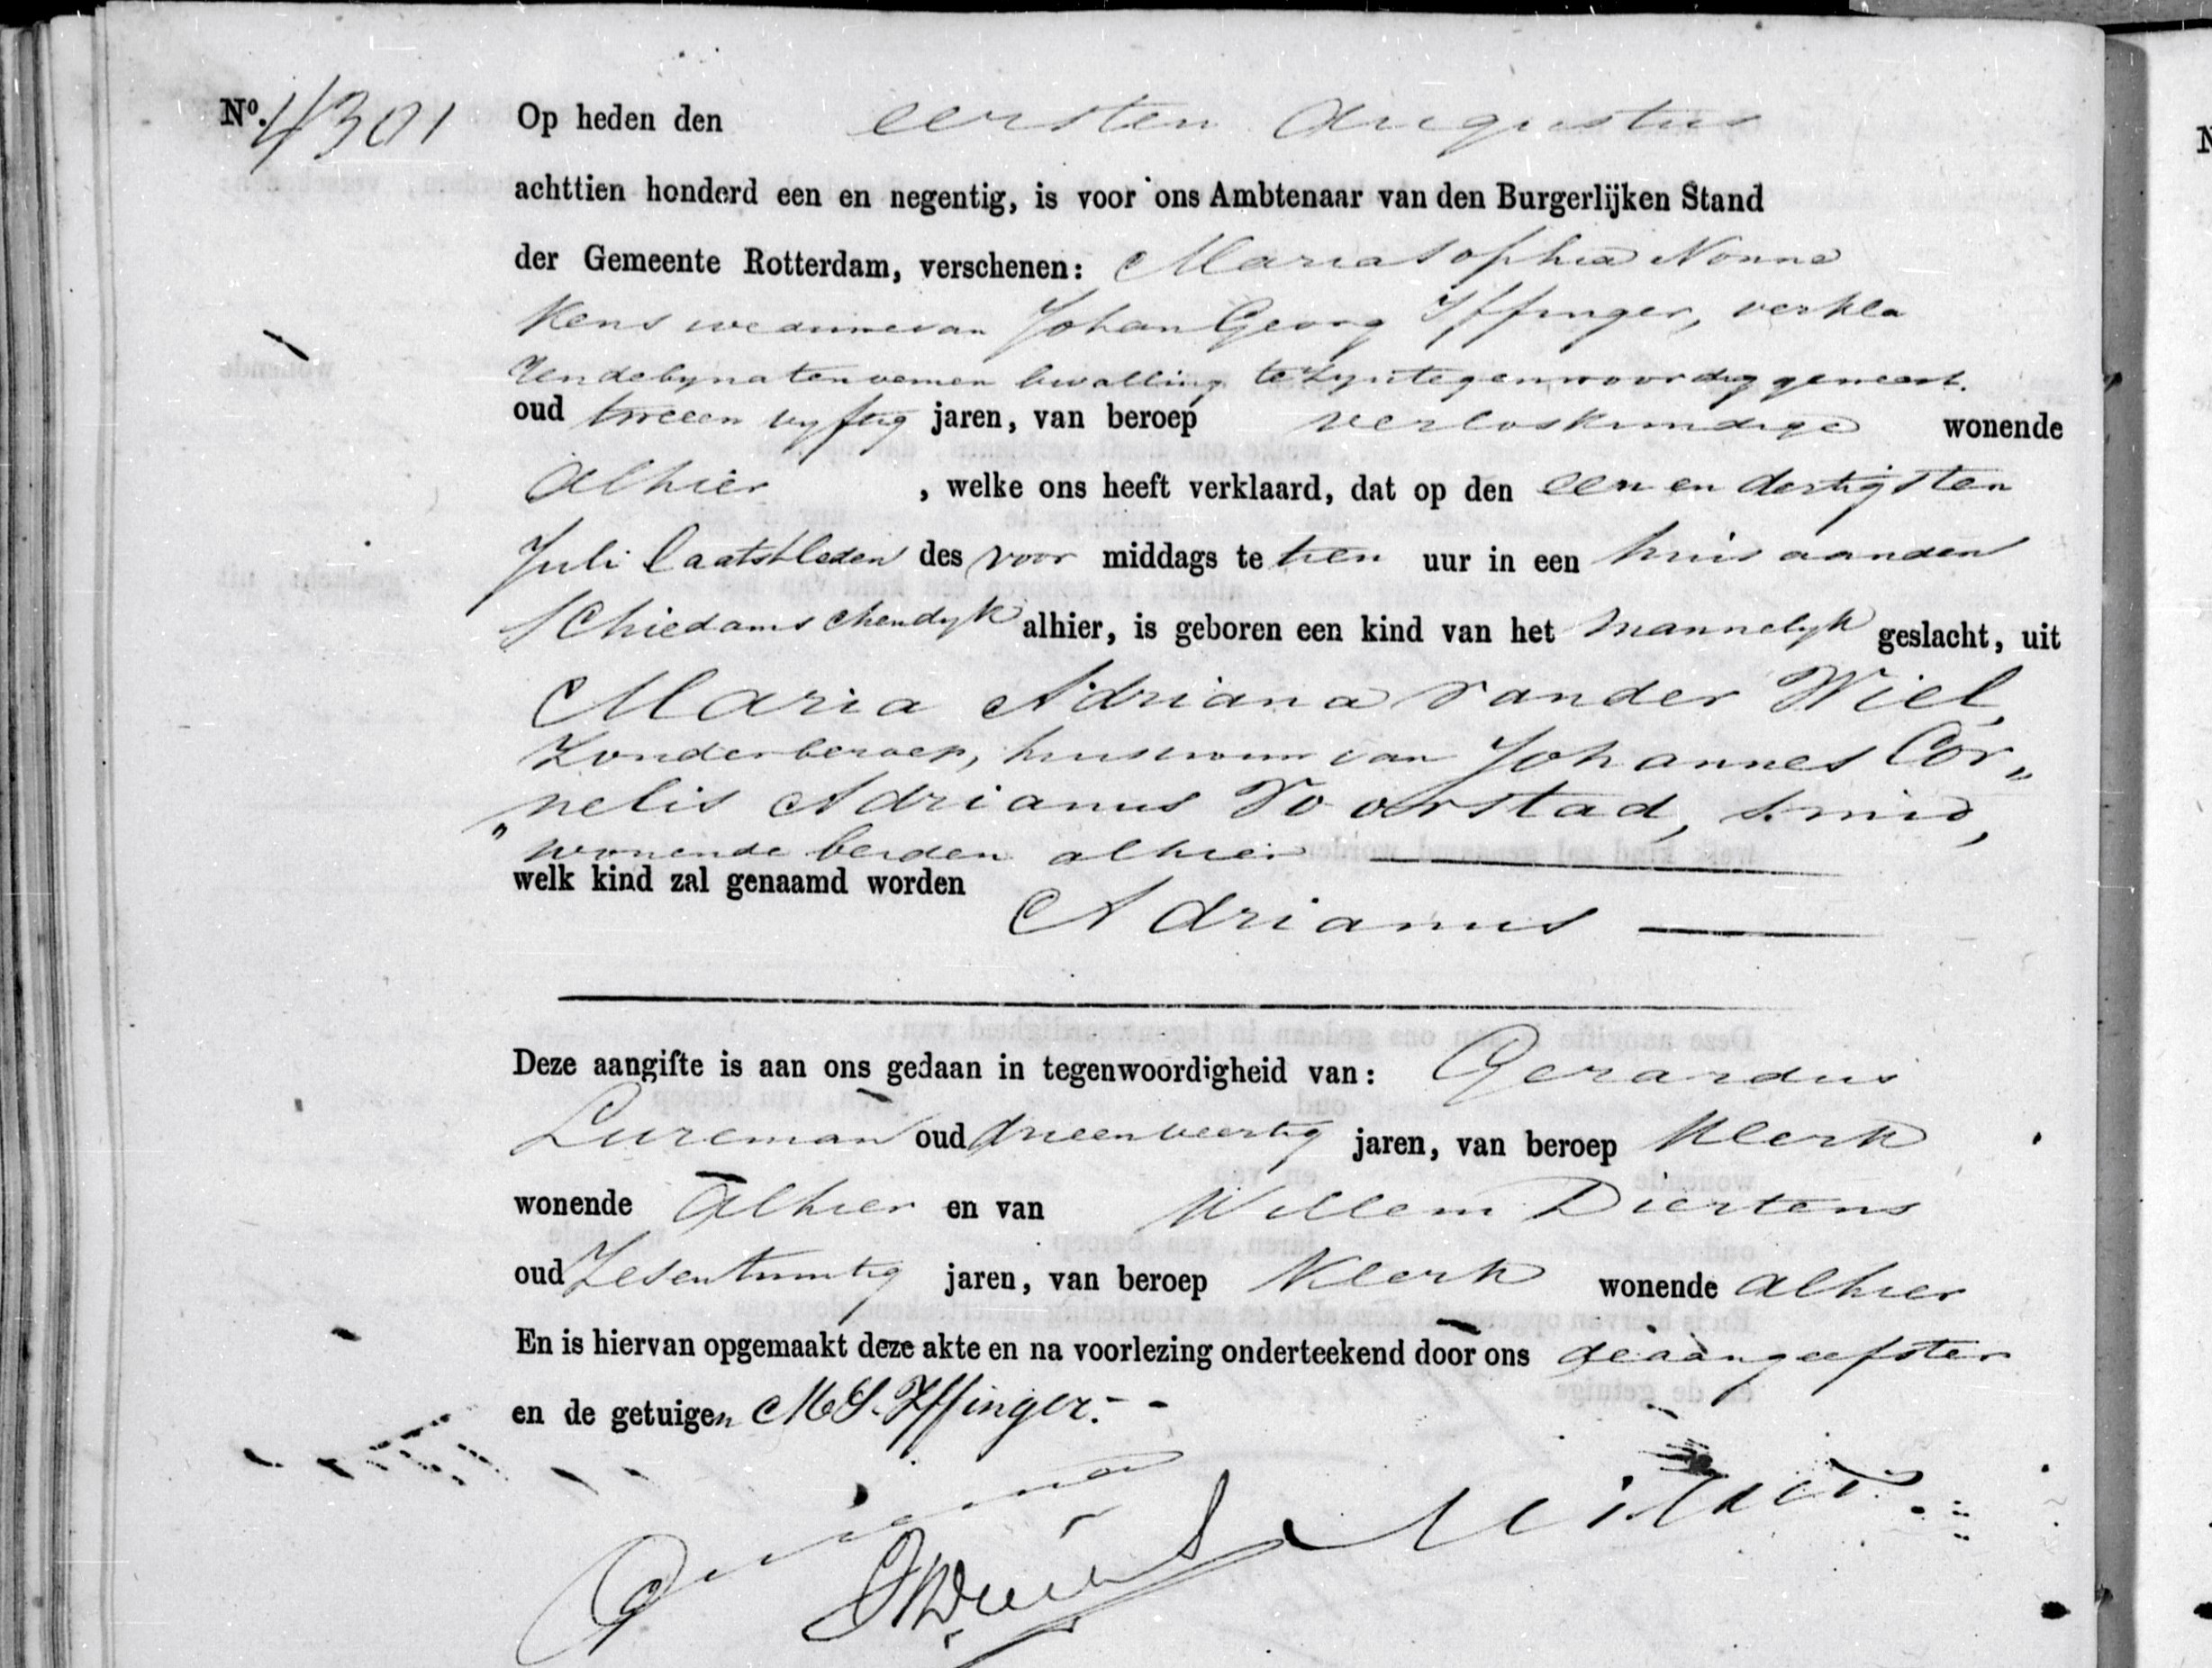 No. 4301 Op heden den eersten Augustus
achttien honderd een en negentig, is voor ons Ambtenaar van den Burgerlijken Stand
der Gemeente Rotterdam, verschenen: Maria Sophia Nonne
Kens weduwe van Johan Georg Iffinger, verkla
rende by na te noemen bevalling te zyn tegenwoordig geweest.
oud twee en vyftig jaren, van beroep verloskundige wonende
alhier , welke ons heeft verklaard, dat op den een en dertigsten
Juli laatstleden des voor middags te tien uur in een huis aan den
Schiedamschendyk alhier, is geboren een kind van het mannelyk geslacht, uit
Maria Adriana van der Wiel,
zonder beroep, huisvrouw van Johannes Cor„
„nelis Adrianus Voorstad, smid,
wonende beiden alhier
welk kind zal genaamd worden
Adrianus
Deze aangifte is aan ons gedaan in tegenwoordigheid van: Gerardus
Lureman oud drieenveertig jaren, van beroep Klerk
wonende alhier en van Willem Diertens
oud Zesentwintig jaren, van beroep Klerk wonende alhier
En is hiervan opgemaakt deze akte en na voorlezing onderteekend door ons de aangeefster
en de getuigen M S. Iffinger.